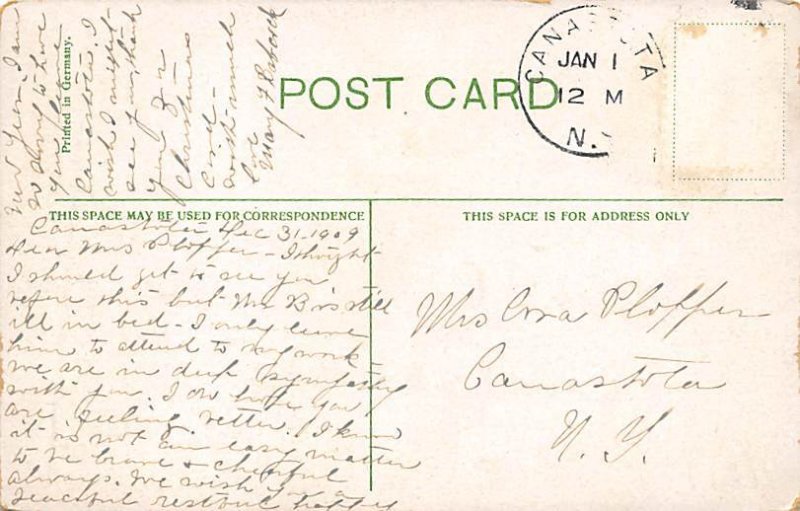 POST CARD
Printed in Germany.
CANASTOTA
JAN 1
12 M
N.
THIS SPACE MAY BE USED FOR CORRESPONDENCE
THIS SPACE IS FOR ADDRESS ONLY
Canastota Dec 31-1909
Dear Mrs Plopper - I thought
I should get to see you
before this but Mr B is still
ill in bed - I only leave
him to attend to my work -
we are in deep sympathy
with you. I do hope you
are feeling better. I know
it is not an easy matter
to be brave & cheerful
always. We wish you a
peaceful restful happy
New Year. I am
so sorry to have
you leave
Canastota. I
wish I might
see you thank
you for
Christmas
card -
with much
love
Mary
Mrs Ora Plopper
Canastota
N. Y.